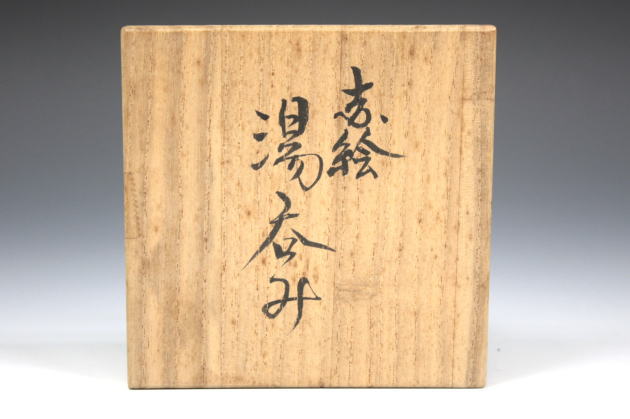 赤絵
湯呑み